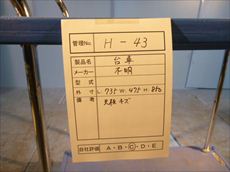 管理No. H-43
製品名 台車
メーカー 不明
型式
外寸 L 735 W 475 H 850
備考 天板キズ
自社評価 A・B・C・D・E